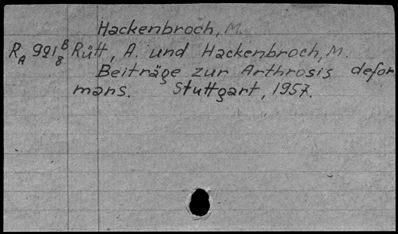 Hackenbroch, M.
R_A 921 B/8 Rütt, A. und Hackenbroch, M.
Beiträge zur Arthrosis defor
mans. Stuttgart, 1957.